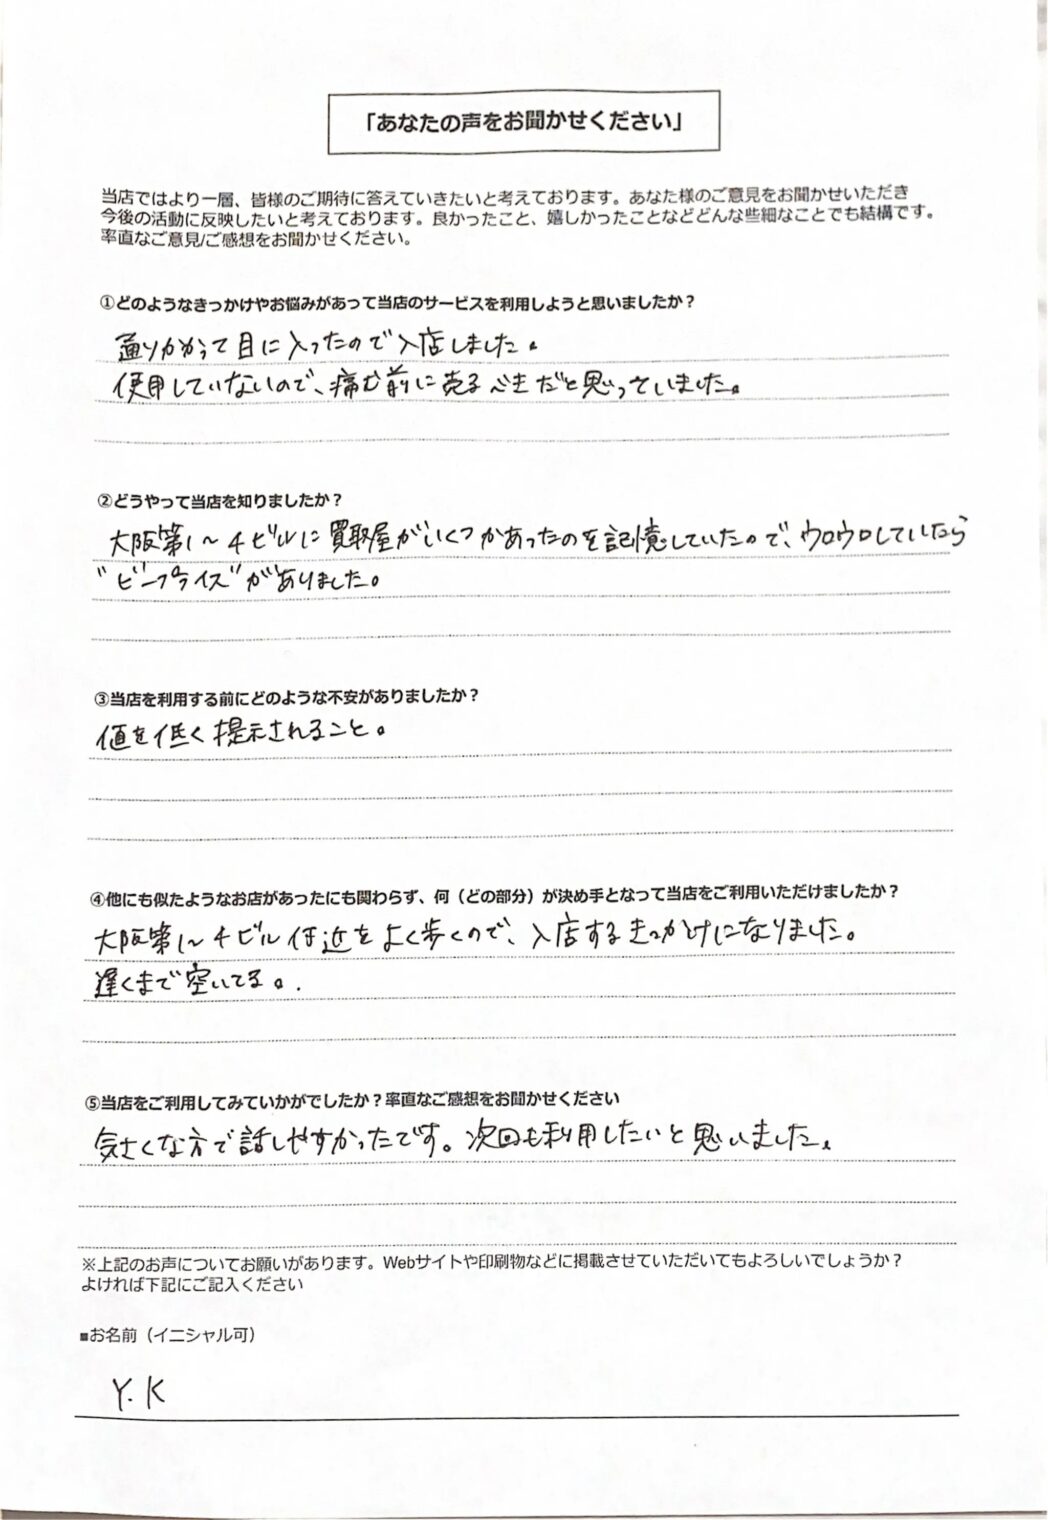 「あなたの声をお聞かせください」
当店ではより一層、皆様のご期待に答えていきたいと考えております。あなた様のご意見をお聞かせいただき
今後の活動に反映したいと考えております。良かったこと、嬉しかったことなどどんな些細なことでも結構です。
率直なご意見/ご感想をお聞かせください。
①どのようなきっかけやお悩みがあって当店のサービスを利用しようと思いましたか？
通りかかって目に入ったので入店しました。
使用していないので、痛む前に売るべきだと思っていました。
②どうやって当店を知りましたか？
大阪第1〜4ビルに買取屋がいくつかあったのを記憶していたので、ウロウロしていたら
"ビープライス"がありました。
③当店を利用する前にどのような不安がありましたか？
値を低く提示されること。
④他にも似たようなお店があったにも関わらず、何（どの部分）が決め手となって当店をご利用いただけましたか？
大阪第1〜4ビル付近をよく歩くので、入店するきっかけになりました。
遅くまで空いてる。.
⑤当店をご利用してみていかがでしたか？率直なご感想をお聞かせください
気さくな方で話しやすかったです。次回も利用したいと思いました。
※上記のお声についてお願いがあります。Webサイトや印刷物などに掲載させていただいてもよろしいでしょうか？
よければ下記にご記入ください
■お名前（イニシャル可）
Y.K